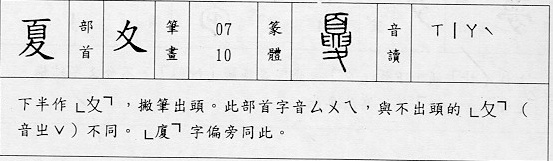 夏 部首 夊 筆畫 07 10 篆體 音讀 ㄒㄧㄚˋ
下半作﹂夊﹁，撇筆出頭。此部首字音ㄙㄨㄟ，與不出頭的﹂夂﹁（
音ㄓˇ）不同。﹂廈﹁字偏旁同此。